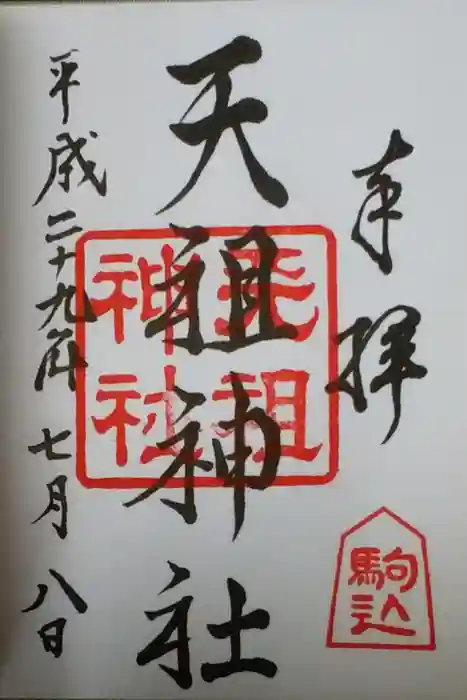 奉拝
天祖神社
平成二十九年七月八日
天祖
神社
駒込